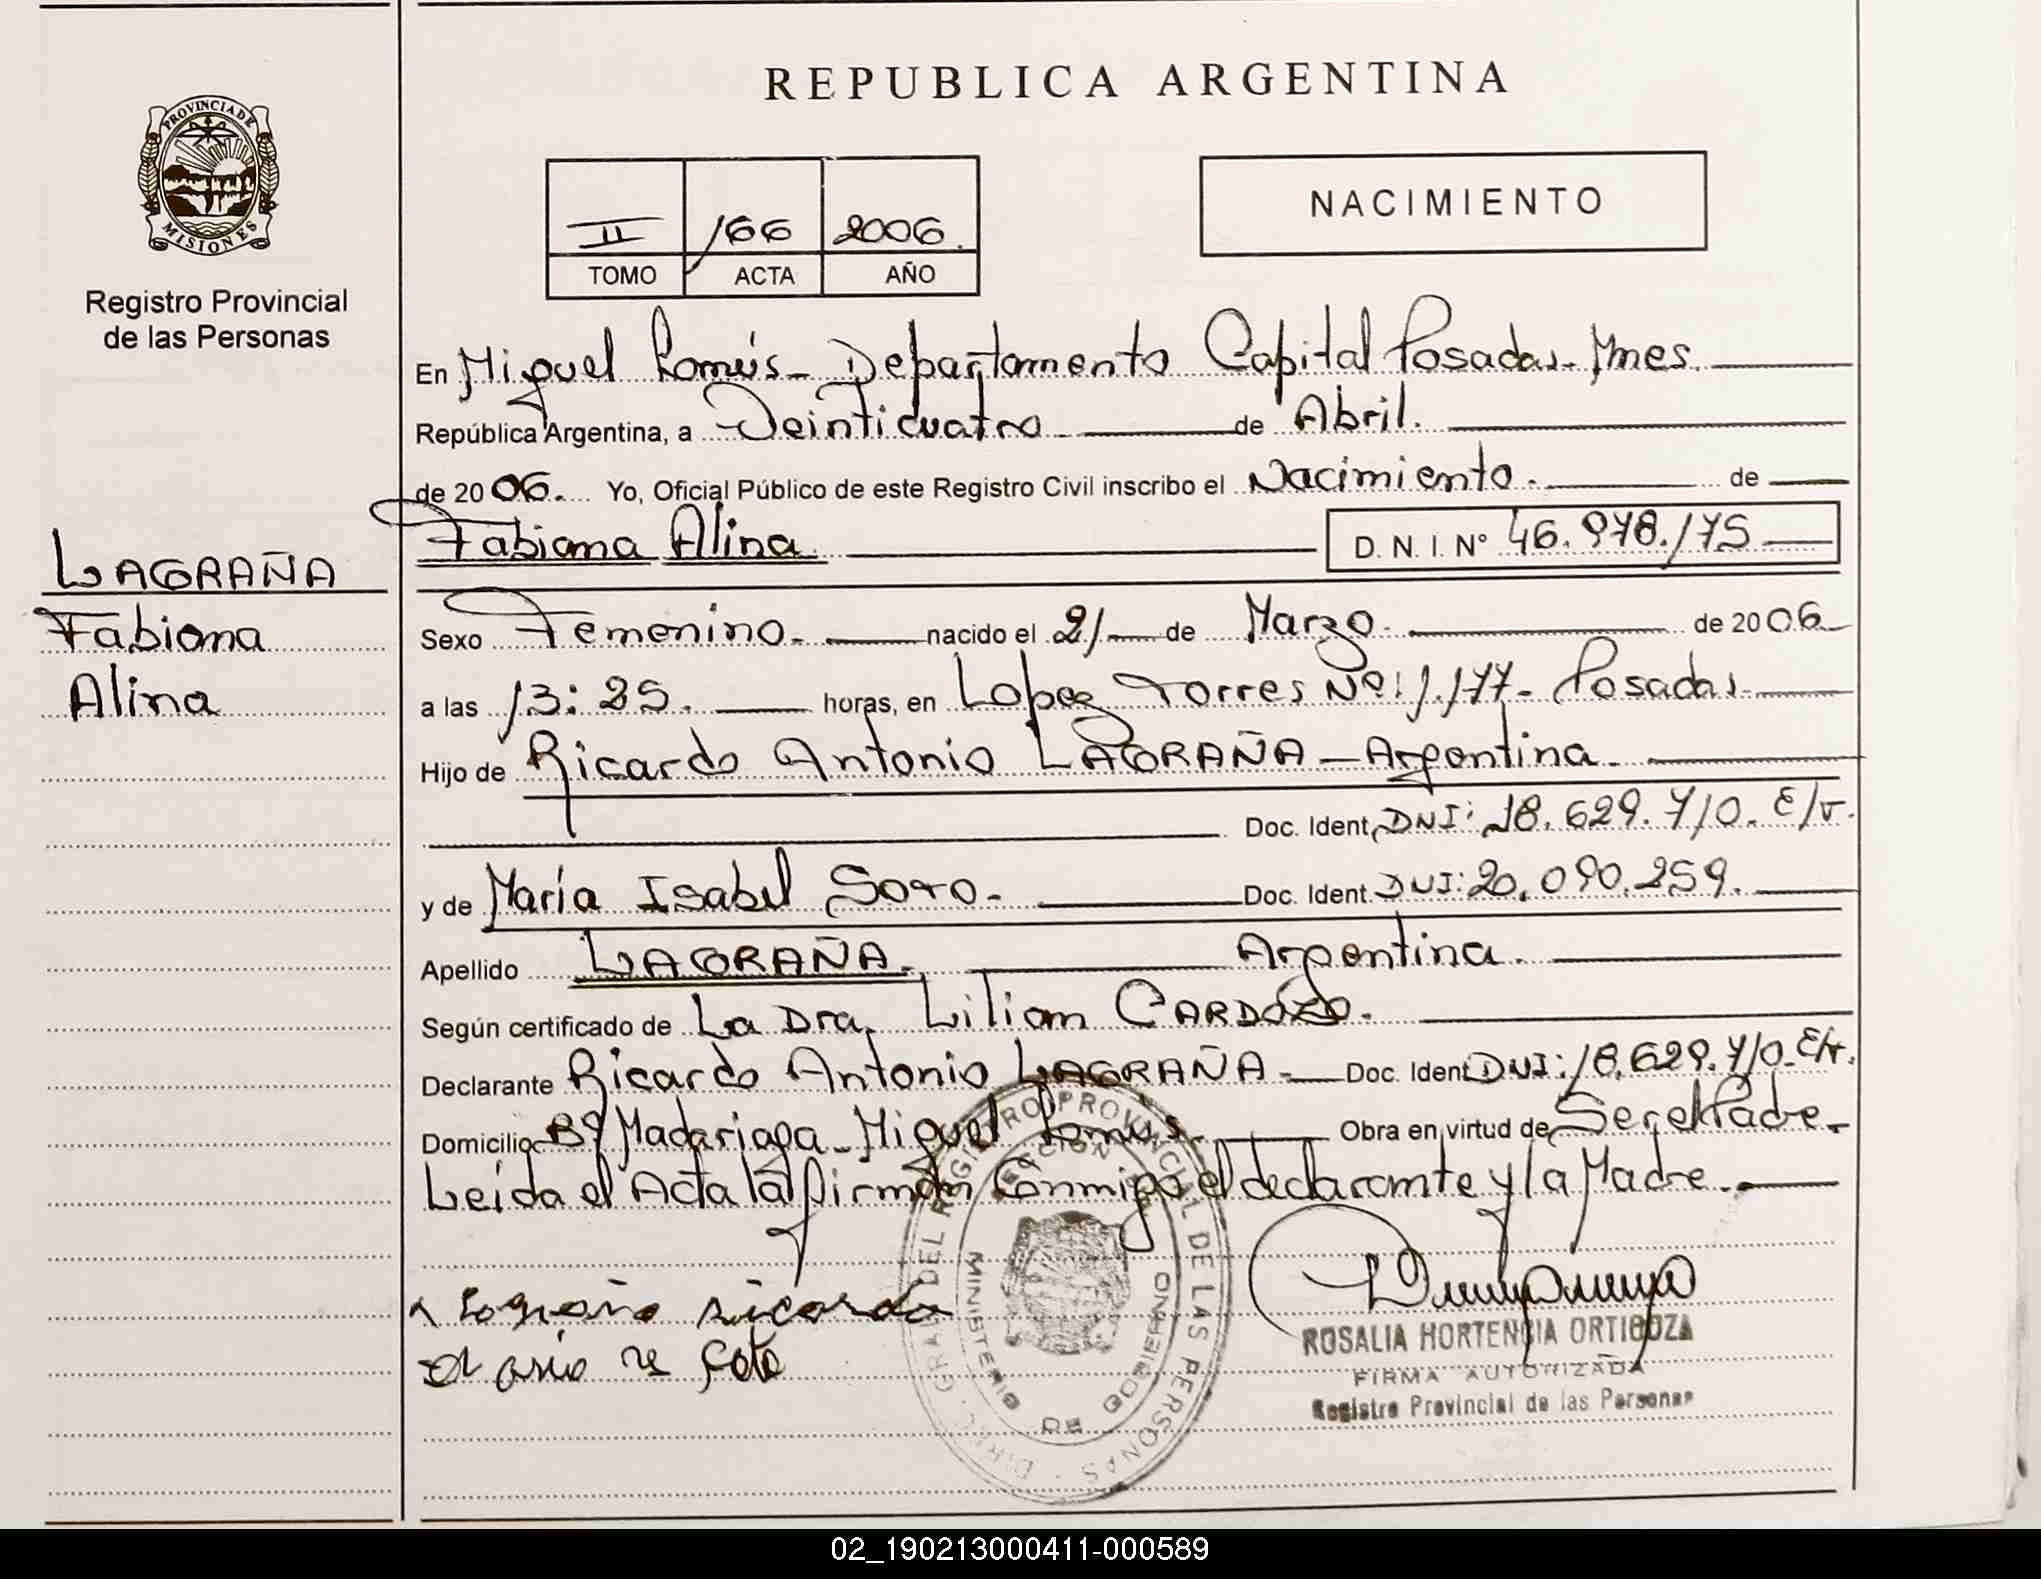 REPUBLICA ARGENTINA
PROVINCIA DE MISIONES
Registro Provincial
de las Personas
II 166 2006
TOMO ACTA AÑO
NACIMIENTO
En Miguel Lanús - Departamento Capital Posadas - Mnes.
República Argentina, a Veinticuatro de Abril.
de 2006. Yo, Oficial Público de este Registro Civil inscribo el Nacimiento. de
Fabiana Alina D. N. I. Nº 46.978.175
LAGRAÑA
Fabiana
Alina
Sexo Femenino. nacido el 21 de Marzo. de 2006
a las 13:25. horas, en Lopez Torres Nº: 1.177- Posadas.
Hijo de Ricardo Antonio LAGRAÑA - Argentina.
Doc. Ident. DNI: 18.629.710. E/T.
y de María Isabel Soto. Doc. Ident. DNI: 20.090.259.
Apellido LAGRAÑA. Argentina.
Según certificado de La Dra. Lilian CARDOZO.
Declarante Ricardo Antonio LAGRAÑA - Doc. Ident. DNI: 18.629.710. E/T.
Domicilio Bº Madariaga - Miguel Lanús. Obra en virtud de Ser el Padre.
Leída el Acta la firman Conmigo el declarante y la Madre.
Lagraña Ricardo
DIREC. GRAL. DEL REGISTRO PROVINCIAL DE LAS PERSONAS
MINISTERIO DE GOBIERNO
ROSALIA HORTENCIA ORTIGOZA
FIRMA AUTORIZADA
Registro Provincial de las Personas
02_190213000411-000589